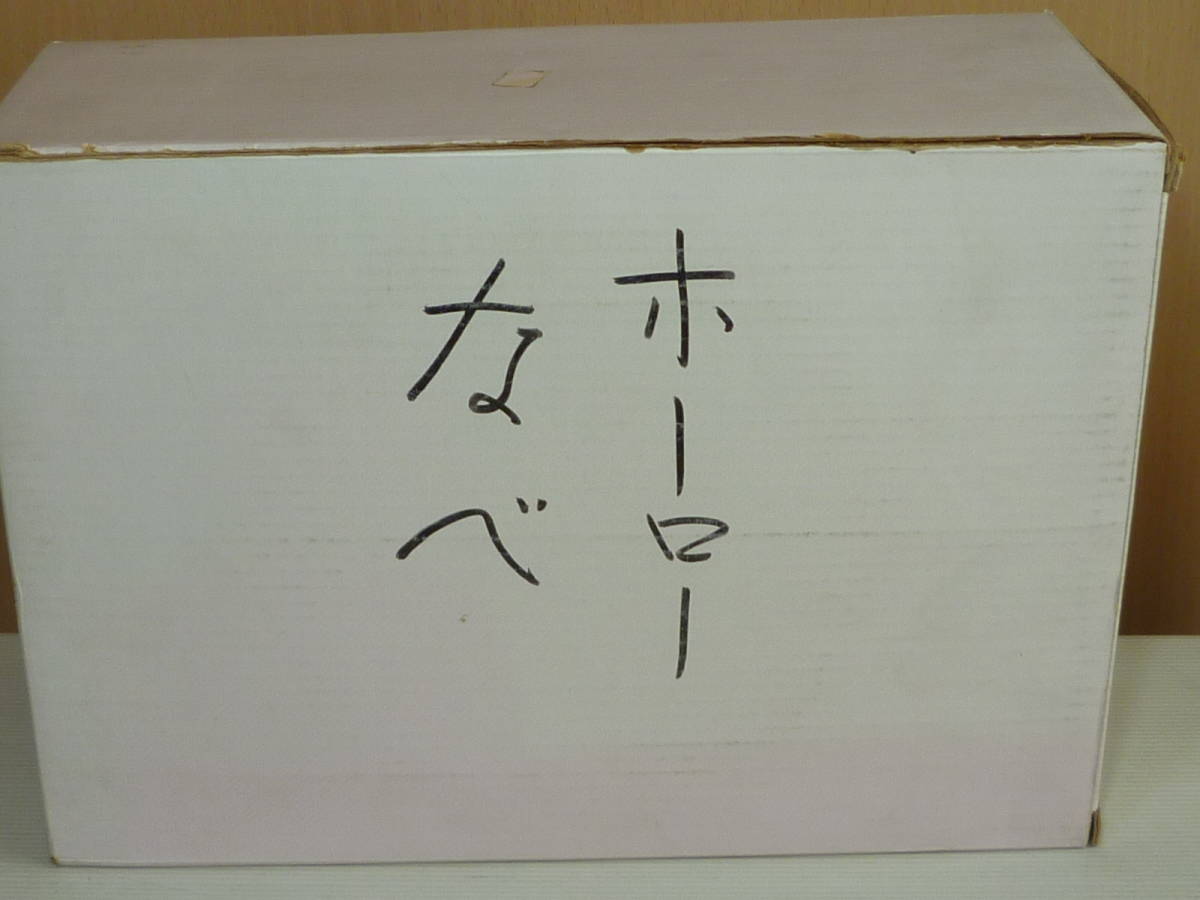 ホーロー
なべ